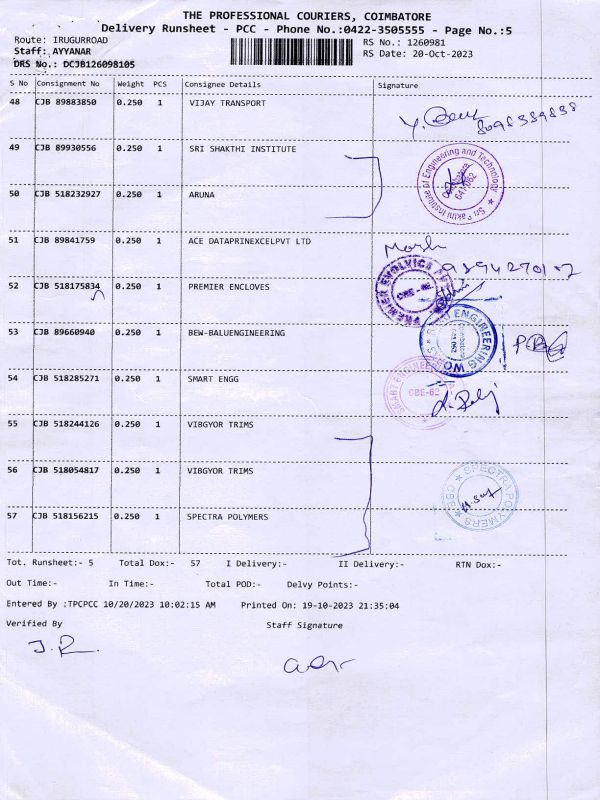 THE PROFESSIONAL COURIERS, COIMBATORE
Delivery Runsheet - PCC - Phone No.:0422-3505555 - Page No.:5
Route: IRUGURROAD RS No.: 1260981
Staff: AYYANAR RS Date: 20-Oct-2023
DRS No.: DCJB126098105
S No Consignment No Weight PCS Consignee Details Signature
48 CJB 89883850 0.250 1 VIJAY TRANSPORT
8098389838
49 CJB 89930556 0.250 1 SRI SHAKTHI INSTITUTE
Institute of Engineering and Technology
641-062
50 CJB 518232927 0.250 1 ARUNA
51 CJB 89841759 0.250 1 ACE DATAPRINEXCELPVT LTD
52 CJB 518175834 0.250 1 PREMIER ENCLOVES
PREMIER EVOLVICS
CBE - 62.
53 CJB 89660940 0.250 1 BEW-BALUENGINEERING
ENGINEERING WORKS
54 CJB 518285271 0.250 1 SMART ENGG
SMART ENGINEERS
CBE-62
55 CJB 518244126 0.250 1 VIBGYOR TRIMS
56 CJB 518054817 0.250 1 VIBGYOR TRIMS
SPECTRA POLYMERS
CBE
57 CJB 518156215 0.250 1 SPECTRA POLYMERS
Tot. Runsheet:- 5 Total Dox:- 57 I Delivery:- II Delivery:- RTN Dox:-
Out Time:- In Time:- Total POD:- Delvy Points:-
Entered By :TPCPCC 10/20/2023 10:02:15 AM Printed On: 19-10-2023 21:35:04
Verified By Staff Signature